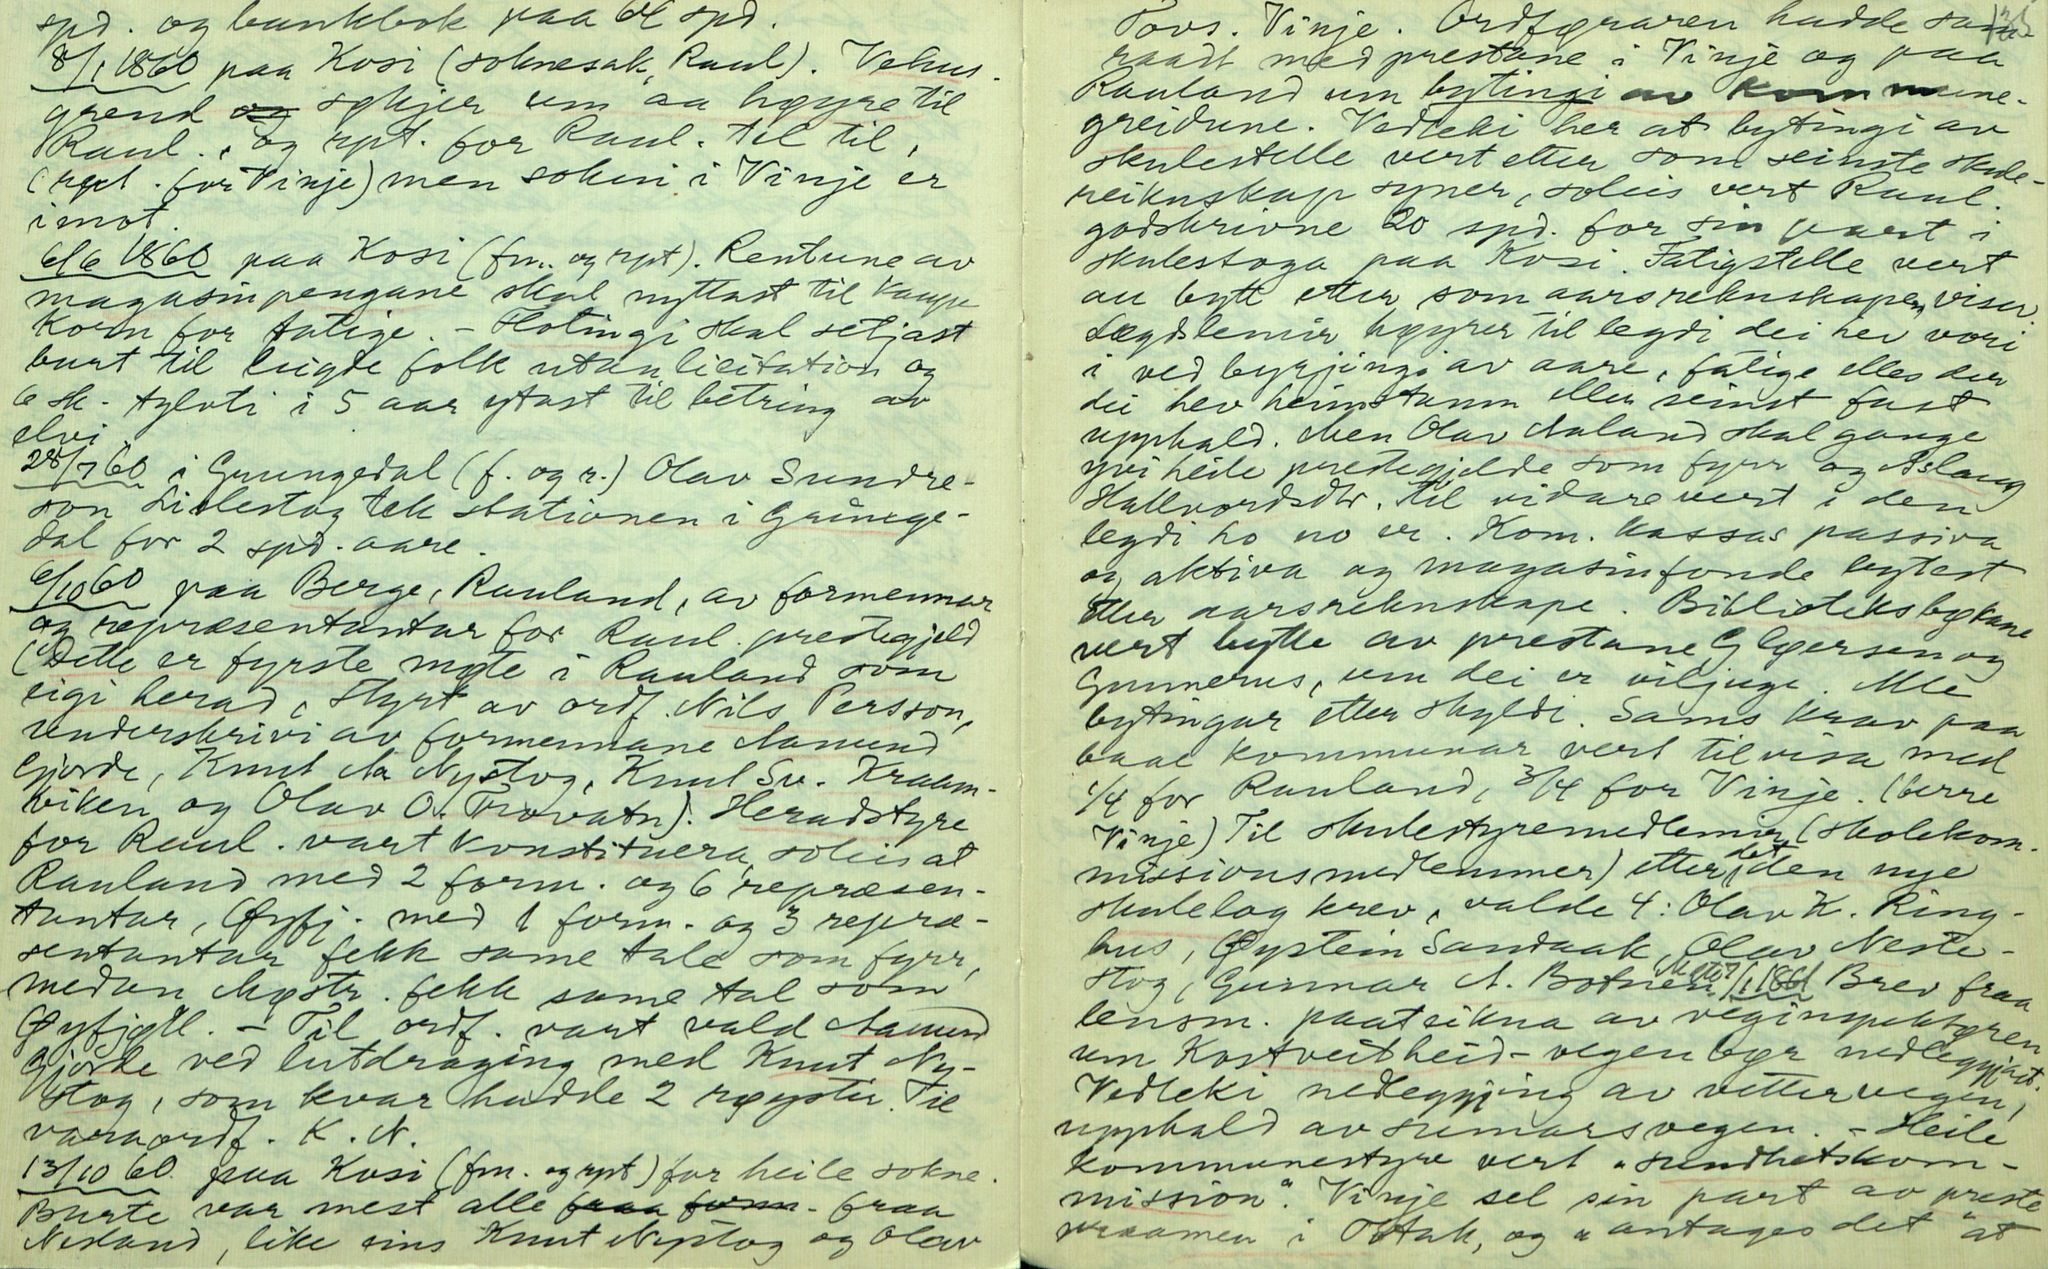 spd. og bankbok paa 61 spd.
8/1 1860 paa Kosi (soknesak, Raul). Vehus-
grend og søkjer um aa høyre til
Raul., og rpt. for Raul. til til,
(rept. for Vinje) men sokni i Vinje er
imot.
6/6 1860 paa Kosi (fm. og rpt). Rentune av
magasinpengane skal nyttast til kaupe
korn for fatige. – Fløtingi skal setjast
burt til leigde folk utan licitation og
6 sk. tylvti i 5 aar ytast til betring av
elvi.
28/7 60 i Grungedal (f. og r.) Olav Sundre-
son Lislestog tek stationen i Grunge-
dal for 2 spd. aare.
6/10 60 paa Berge, Rauland, av formennar
og repræsentantar for Raul. prestegjeld
(Dette er fyrste møte i Rauland som
eigi herad, styrt av ordf. Nils Persson,
underskrivi av formennane Aamund
Gjorde, Knut N. Nystog, Knut Sv. Kraam-
viken og Olav O. Trovatn). Heradstyre
for Raul. vart konstituera, soleis at
Rauland med 2 form. og 6 repræsen-
tantar, Øyfj. med 1 form. og 3 repræ-
sentantar fekk same tale som fyrr,
medan Møstr. fekk same tal som
Øyfjøll. – Til ordf. vart vald Aamund
Gjorde ved lutdraging med Knut Ny-
stog, som kvar hadde 2 røyster. Til
varaordf. K. N.
13/10 60 paa Kosi (fm. og rpt) for heile sokne.
Burte var mest alle fraa form. fraa
Nesland, like eins Knut Nystog og Olav
Tovs. Vinje. Ordføraren hadde sam-
raadt med prestane i Vinje og paa
Rauland um bytingi av kommune-
greidune. Vedteki her at bytingi av
skulestelle vert etter som seinste skule-
reiknskap syner, soleis vert Raul.
godskrivne 20 spd. for sin part i
skulestoga paa Kosi. Fatigstelle vert
au bytt etter som aarsreknskapen viser.
Lægdslemir høyrer til legdi dei hev vori
i ved byrjingi av aare, fatige elles der
dei hev heimstamn eller seinst fast
upphald. Men Olav Aaland skal gange
yvi heile prestegjelde som fyrr og Aslaug
Hallvordsdtr. til vidare vert i den
legdi ho no er. Kom. kassas passiva
og aktiva og magasinfonde bytest
etter aarsreknskape. Biblioteksbøkane
vert bytte av prestane Gløersen og
Gunnerus, um dei er viljuge. Alle
bytingar etter skyldi. Sams krav paa
baae kommunar vert tilvisa med
1/4 for Rauland, 3/4 for Vinje. (berre
Vinje) Til skulestyremedlemir (skolekom-
missionsmedlemmer) etter det den nye
skulelog krev, valde 4: Olav K. Ring-
hus, Øystein Sandaak, Olav Neste-
stog, Gunnar A. Botnen. 1/1 1861 Brev fraa
lensm. paateikna av veginspektøren
um Kostveitheid-vegen bør nedleggjast.
Vedteki nedleggjing av vettervegen,
upphald av sumarsvegen. – Heile
kommunestyre vert "sundhetskom-
mission". Vinje sel sin part av preste
vraamen i Øtak, og "antages det" at
135